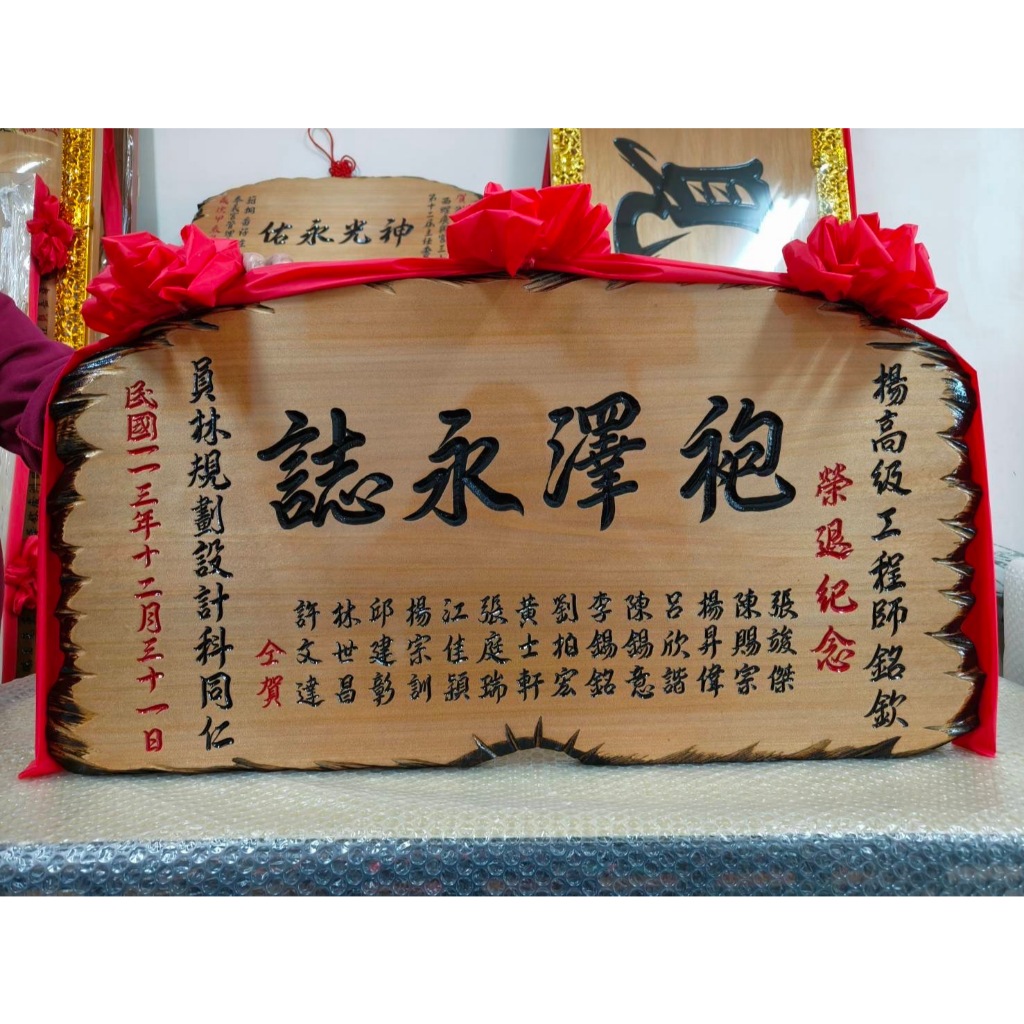 楊高級工程師銘欽
榮退紀念
袍澤永誌
張竣傑
陳賜宗
楊昇偉
呂欣諧
陳錫意
李錫銘
劉柏宏
黃士軒
張庭瑞
江佳穎
楊宗訓
邱建彰
林世昌
許文達
仝賀
員林規劃設計科同仁
民國一一三年十二月三十一日
神光永佑